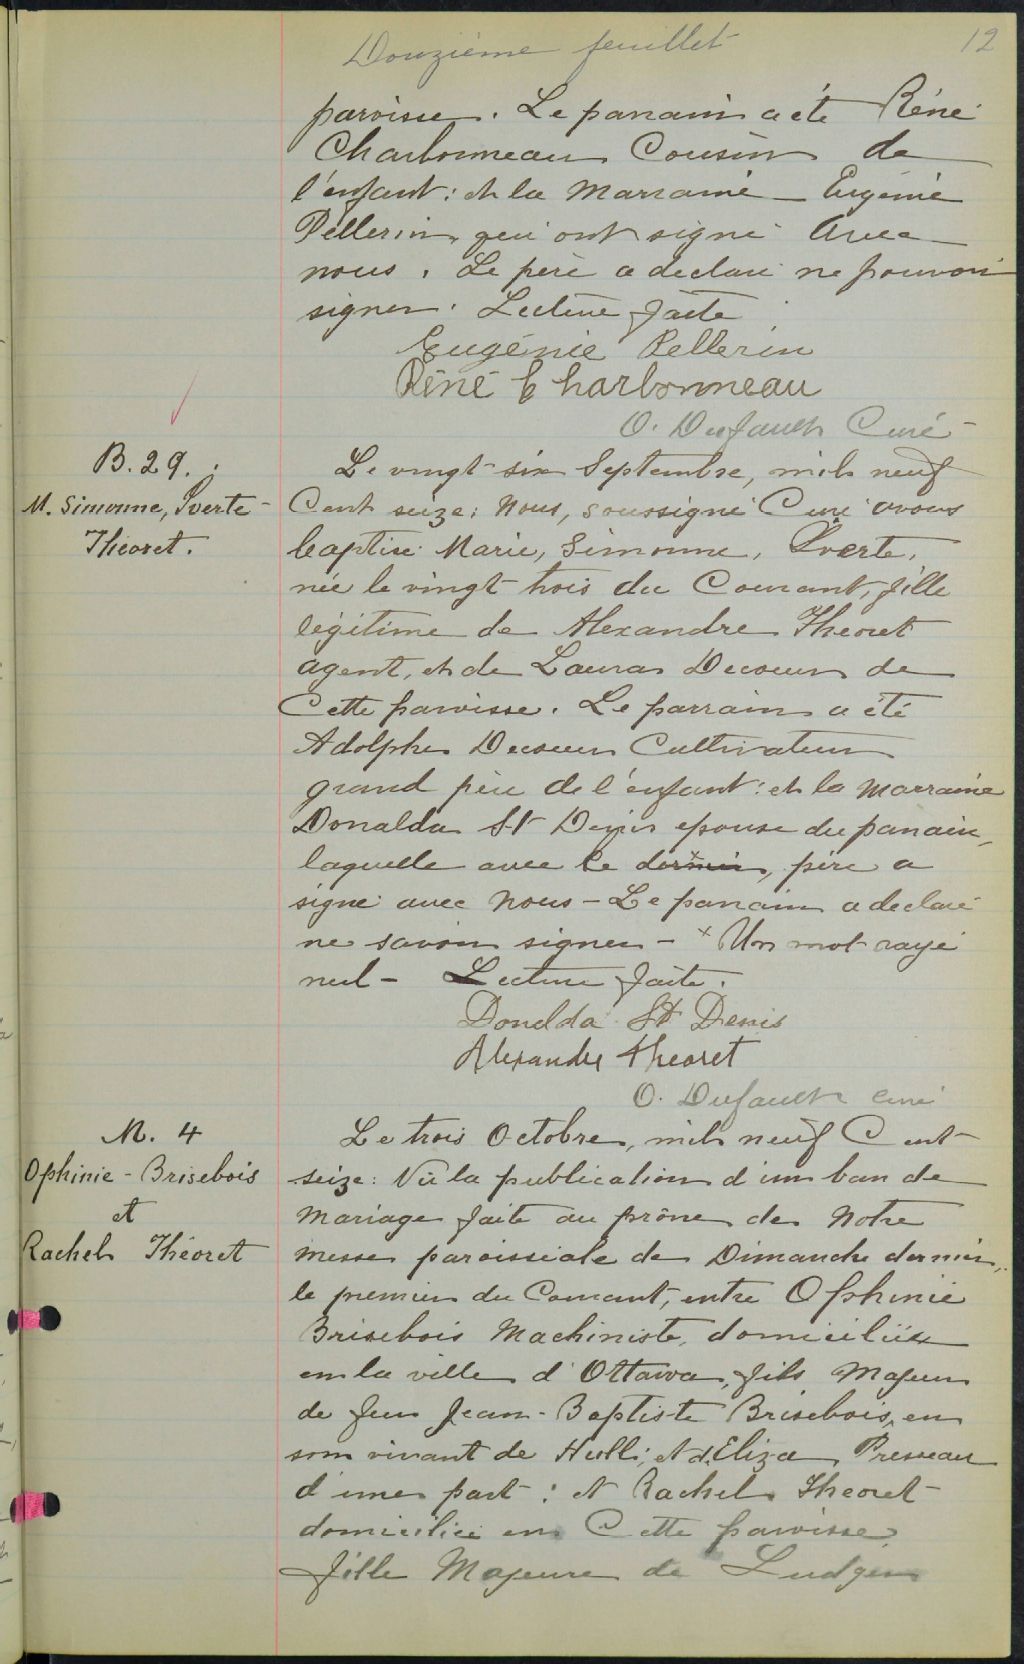 Douzième feuillet 12
paroisse. Le parrain a été Réné
Charbonneau Cousin de
l'enfant: et la Marraine Eugénie
Pellerin, qui ont signé avec
nous. Le père a déclaré ne pouvoir
signer. Lecture faite
Eugénie Pellerin
Réné Charbonneau
O. Dufault Curé
B. 29.
M. Simonne, Yverte
Théoret.
Le vingt-six Septembre, mil neuf
Cent seize: Nous, soussigné Curé avons
baptisé Marie, Simonne, Yverte,
née le vingt trois du Courant, fille
légitime de Alexandre Théoret
agent, et de Laura Decoeur de
Cette paroisse. Le parrain a été
Adolphe Decoeur Cultivateur
grand père de l'enfant: et la Marraine
Donalda St Denis epouse du parrain,
laquelle avec le dernier, père a
signé avec Nous - Le parrain a déclaré
ne savoir signer - x Un mot rayé
nul - Lecture faite.
Donelda St Denis
Alexandre Theoret
O. Dufault curé
M. 4
Ophinie - Brisebois
et
Rachel Théoret
Le trois Octobre, mil neuf Cent
seize: Vu la publication d'un ban de
Mariage faite au prône de Notre
Messe paroissiale de Dimanche dernier,
le premier du Courant, entre Ophinie
Brisebois Machiniste, domicilié
en la ville d'Ottawa, fils Majeur
de feu Jean-Baptiste Brisebois, en
son vivant de Hull; et d'Eliza Presseau
d'une part: et Rachel Theoret
domiciliée en Cette paroisse,
fille Majeure de Ludger